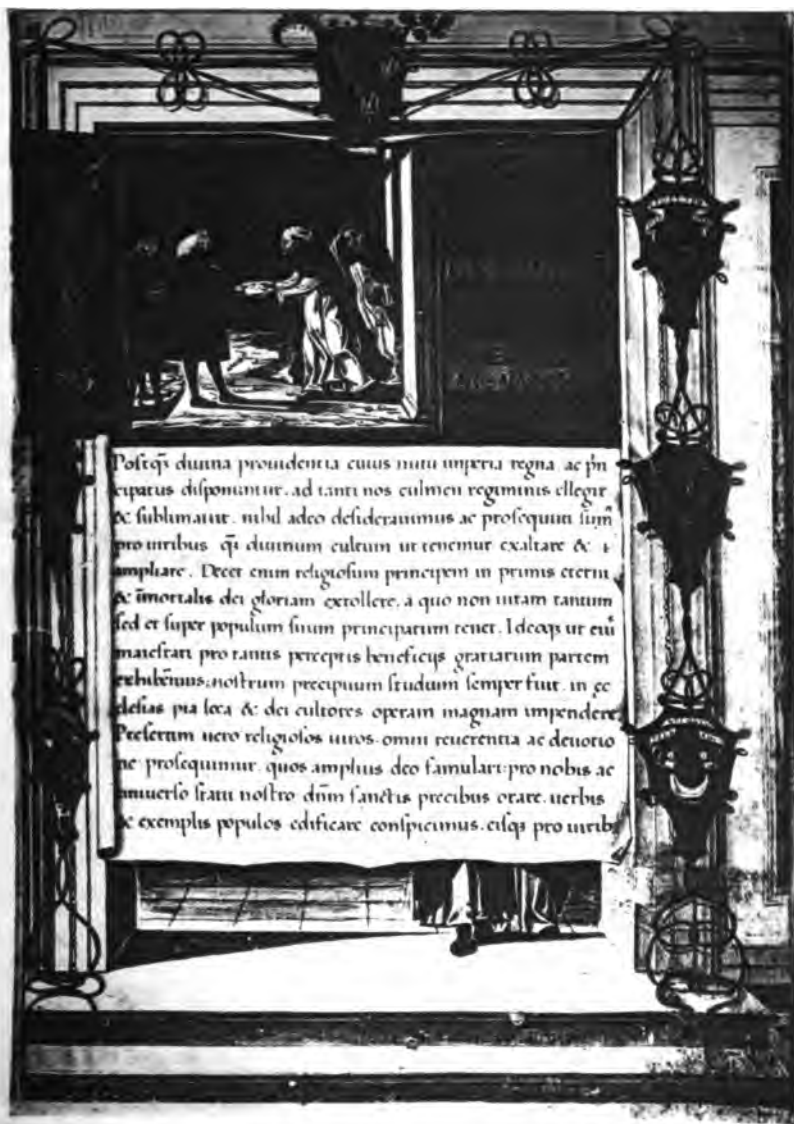 Postq̃ diuina prouidentia cuius nutu imperia regna ac p̃n
cipatus disponuntur. ad tanti nos culmen regiminis ellegit
& sublimauit. nihil adeo desiderauimus ac prosequuti sum̃
pro uiribus q̃ diuinum cultum ut tenemur exaltare &
ampliare. Decet enim religiosum principem in primis eterni
& īmortalis dei gloriam extollere. a quo non uitam tantum
sed et super populum suum principatum tenet. Ideoq; ut eiu᷒
maiestati pro tantis perceptis beneficijs gratiarum partem
exhibēmus. nostrum precipuum studium semper fuit. in ec
clesias pia loca & dei cultores operam magnam impendere.
Presertim uero religiosos uiros. omni reuerentia ac deuotio
ne prosequimur. quos amplius deo famulari. pro nobis ac
uniuerso statu nostro dñm sanctis precibus orare. uerbis
& exemplis populos edificare conspicimus. eisq; pro uirib᷒